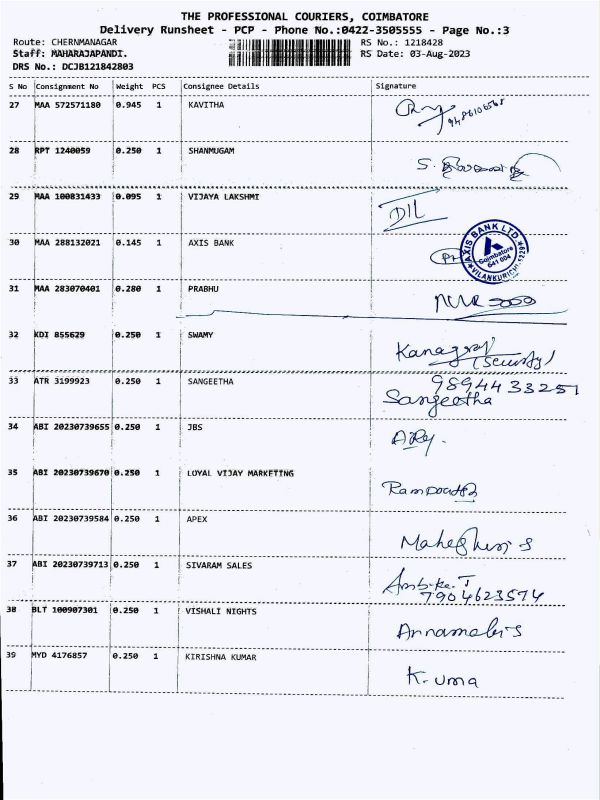 THE PROFESSIONAL COURIERS, COIMBATORE
Delivery Runsheet - PCP - Phone No.:0422-3505555 - Page No.:3
Route: CHERNMANAGAR RS No.: 1218428
Staff: MAHARAJAPANDI. RS Date: 03-Aug-2023
DRS No.: DCJB121842803
S No Consignment No Weight PCS Consignee Details Signature
27 MAA 572571180 0.945 1 KAVITHA
28 RPT 1240059 0.250 1 SHANMUGAM
29 MAA 100831433 0.095 1 VIJAYA LAKSHMI
30 MAA 288132021 0.145 1 AXIS BANK
AXIS BANK LTD
Coimbatore
641 004
31 MAA 283070401 0.280 1 PRABHU
32 KDI 855629 0.250 1 SWAMY
(Security)
33 ATR 3199923 0.250 1 SANGEETHA
9894433251
Sangeetha
34 ABI 20230739655 0.250 1 JBS
35 ABI 20230739670 0.250 1 LOYAL VIJAY MARKETING
36 ABI 20230739584 0.250 1 APEX
37 ABI 20230739713 0.250 1 SIVARAM SALES
7904623574
38 BLT 100907301 0.250 1 VISHALI NIGHTS
39 MYD 4176857 0.250 1 KIRISHNA KUMAR
K. uma